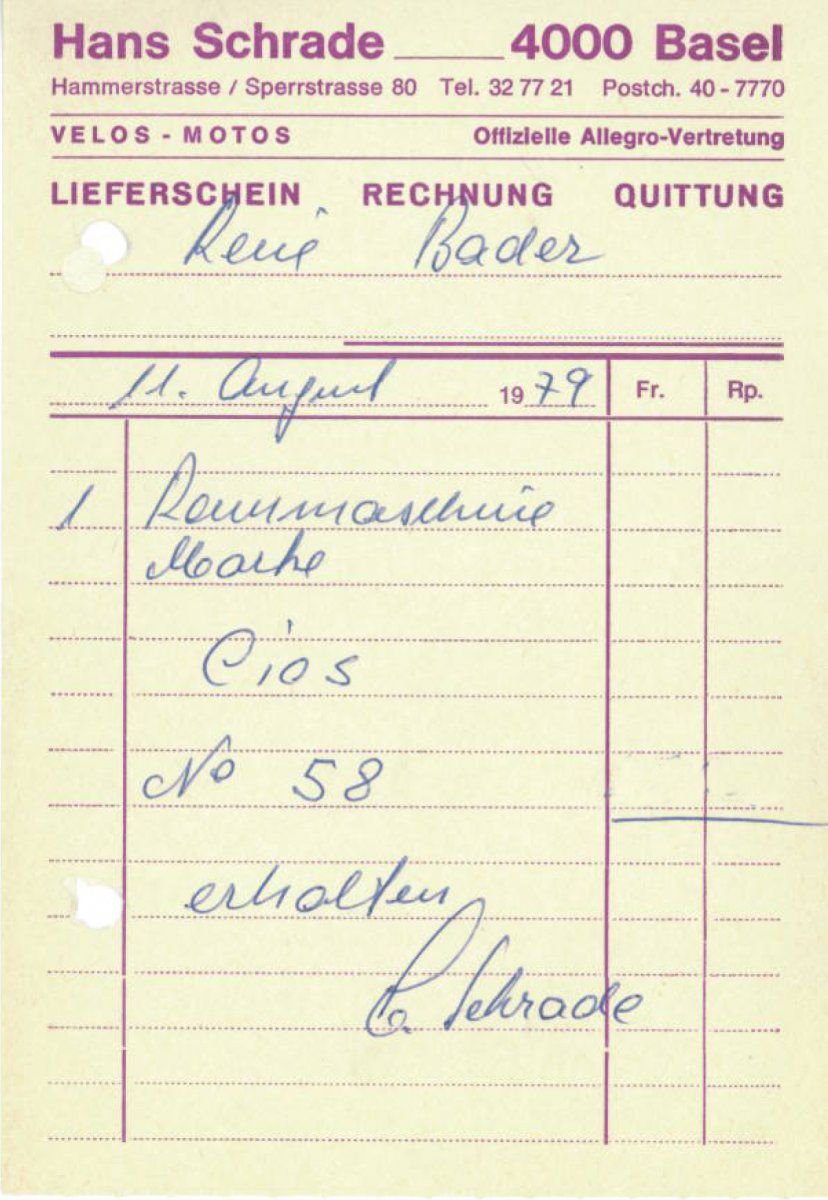 Hans Schrade 4000 Basel
Hammerstrasse / Sperrstrasse 80 Tel. 32 77 21 Postch. 40 - 7770
VELOS - MOTOS Offizielle Allegro-Vertretung
LIEFERSCHEIN RECHNUNG QUITTUNG
René Bader
11. August 1979 Fr. Rp.
1 Rennmaschine
Marke
Cios
No 58
erhalten
Schrade